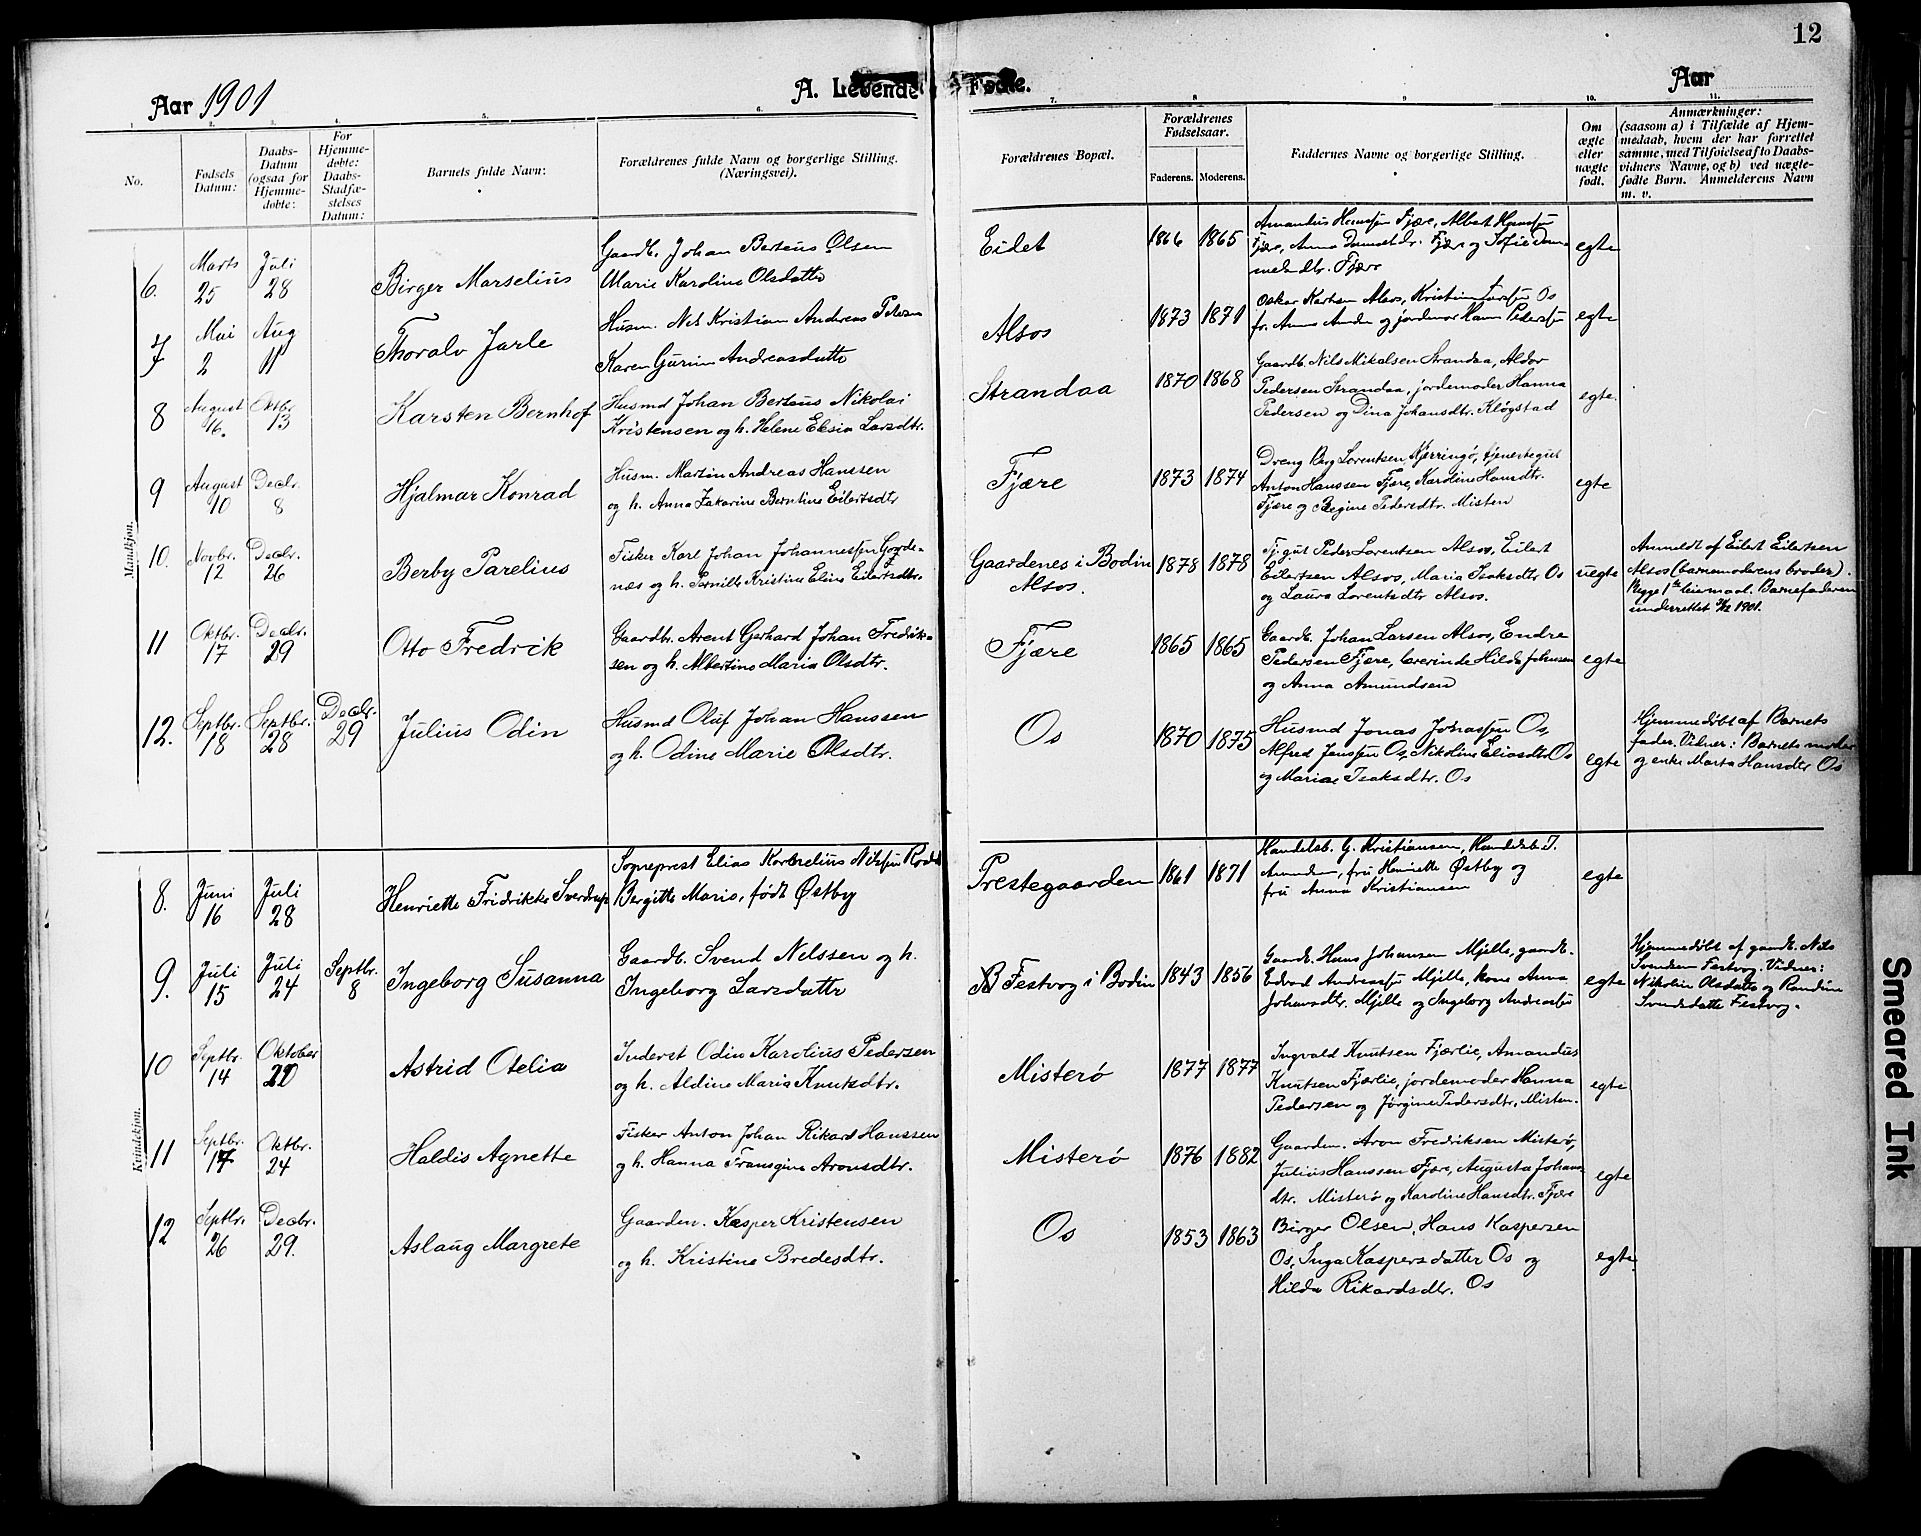 12
Aar 1901
A. Levende Fødte.
Aar
1. 2. 3. 4. 5. 6. 7. 8. 9. 10. 11.
No.
Fødsels Datum:
Daabs-Datum (ogsaa for Hjemmedøbte:
For Hjemmedøbte: Daabs-Stadfæstelses Datum:
Barnets fulde Navn:
Forældrenes fulde Navn og borgerlige Stilling. (Næringsvei).
Forældrenes Bopæl.
Forældrenes Fødselsaar.
Faderens. Moderens.
Faddernes Navne og borgerlige Stilling.
Om ægte eller uægte født.
Anmærkninger: (saasom a) i Tilfælde af Hjemmedaab, hvem der har forrettet samme, med Tilføielse af to Daabsvidners Navne, og b) ved uægtefødte Børn. Anmelderens Navn m. v.
Mandkjøn.
6. Marts 25 Juli 28
Birger Marselius
Gaardb. Johan Berteus Olsen
Marie Karoline Olsdatter
Eidet 1866 1865
Amandus Hansen Fjære, Albert Hansen
Fjære, Anna Fjære og Sofie
Fjære
egte
7 Mai 2 Aug 11
Thoralv Jarle
Husm. Nils Kristian Andreas Petersen
Karen Gurine Andreasdatter
Alsos 1873 1871
Oskar Karlsen Alsos, Kristian Larsen Os
fr. Anna og jordemor Hanna Pedersen
egte
8 August 16. Oktbr. 13
Karsten Bernhof
Husmd Johan Berteus Nikolai
Kristensen og h. Helene Elesia Larsdtr.
Strandaa 1870 1868
Gaardb. Nils Mikalsen Strandaa, Aldor
Pedersen Strandaa, jordemoder Hanna
Pedersen og Dina Johansdtr. Kløgstad
egte.
9 August 10 Decbr. 8
Hjalmar Konrad
Husm. Martin Andreas Hanssen
og h. Anna Zakarine Berntine Eilertsdtr
Fjære 1873 1874
Dreng Berg Lorentsen Kjerringø, tjenestegut
Anton Hanssen Fjære, Karoline Hansdtr.
Fjære og Regine Pedersdtr. Misten
egte
10. Novbr. 12 Decbr. 26
Berby Parelius
Fisker Karl Johan Johannessen Gorde-
næs og h. Pernille Kristine Eline Eilertsdtr.
Gaardenes i Bodin
Alsos. 1878 1878
Tj.gut Peder Lorentsen Alsos, Eilert
Eilertsen Alsos, Maria Isaksdtr Os
og Laura Lorentsdtr Alsos.
uegte
Anmeldt af Eilert Eilertsen
Alsos (barnemoderens broder).
Begge 1ste leiermaal. Barnefaderen
underrettet 1901.
11 Oktbr. 17 Decbr. 29
Otto Fredrik
Gaardbr. Arent Gerhard Johan Fredrik-
sen og h. Albertine Maria Olsdtr.
Fjære 1865 1865
Gaardb. Johan Larsen Alsos, Endre
Pedersen Fjære, lærerinde Hilda Johnsen
og Anna Amundsen
egte
12. Septbr. 18 Septbr. 28 Decbr. 29
Julius Odin
Husmd Oluf Johan Hanssen
og h. Odine Marie Olsdtr.
Os 1870 1875
Husmd Jonas Jonassen Os,
Alfred Jenssen Os, Nikoline Eliasdtr Os
og Mariae Isaksdtr. Os
egte
Hjemmedøbt af Barnets
fader. Vidner: Barnets moder
og enke Marta Hansdtr Os
Kvindekjøn.
8. Juni 16 Juli 28
Henriette Fridrikke Sverdrup
Sogneprest Elias Kornelius Nilssen
Bergitte Marie, født Østby
Prestegaarden 1861 1871
Handelsb. G. Kristiansen, Handelsb. I.
fru Henriette Østby og
fru Anna Kristiansen
egte
9. Juli 15 Juli 24 Septbr. 8
Ingeborg Susanna
Gaardb. Svend Nelssen og h.
Ingeborg Larsdatter
Festvog i Bodin 1843 1856
Gaardb. Hans Johansen Mjelle, gaardb.
Edvard Andreassen Mjelle, kone Anna
Johansdtr. Mjelle og Ingeborg Andreassen
egte
Hjemmedøbt af gaardb. Nils
Svendsen Festvog. Vidner:
Nikoline Olsdatter og Randine
Svendsdatter Festvog.
10 Septbr. 14 Oktober 20
Astrid Otelia
Inderst Odin Karolius Pedersen
og h. Aldine Maria Knutsdtr.
Misterø 1877 1877
Ingvald Knutsen Fjærlie, Amandus
Knutsen Fjærlie, jordemoder Hanna
Pedersen og Jørgine Pedersdtr. Misten.
egte
11 Septbr. 17 Oktbr. 24
Haldis Agnette
Fisker Anton Johan Rikard Hanssen
og h. Hanna Fransgine Aronsdtr.
Misterø 1876 1882
Gaardm. Aron Fredriksen Misterø,
Julius Hanssen Fjære, Augusta Johans
dtr. Misterø og Karoline Hansdtr. Fjære
egte
12 Septbr. 26 Decbr. 29.
Aslaug Margrete
Gaardm. Kasper Kristensen
og h. Kristine Bredesdtr.
Os 1853 1863
Birger Olsen, Hans Kaspersen
Os, Inga Kaspersdatter Os og
Hilda Rikardsdtr. Os
egte.
Smeared Ink